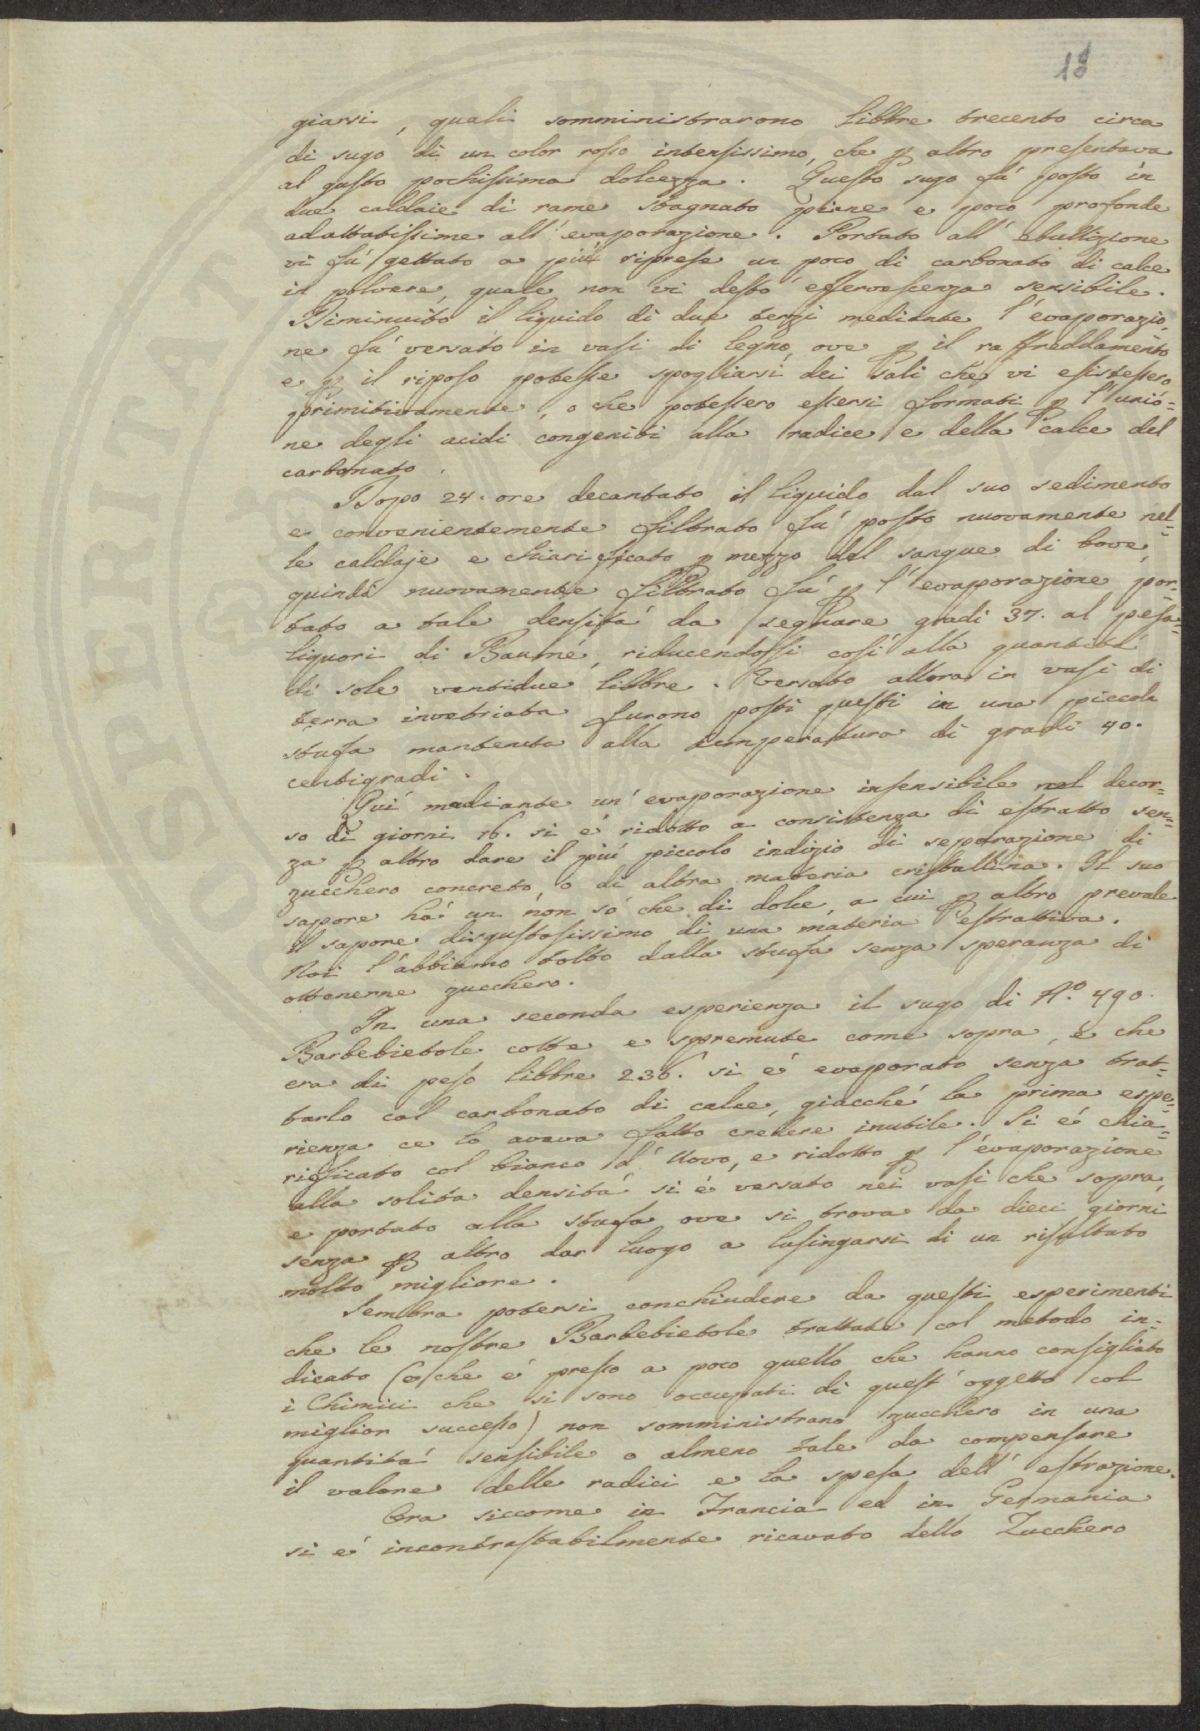 18
giarsi, quali somministrarono libbre trecento circa
di sugo di un color rosso intensissimo, che p altro presentava
al gusto pochissima dolcezza. Questo sugo fú posto in
due caldaie di rame stagnato piane e poco profonde
adattatissime all'evaporazione. Portato all'ebullizione
vi fú gettato a piú riprese un poco di carbonato di calce
in polvere, quale non vi destó effervescenza sensibile.
Diminuito il liquido di due terzi mediante l'evaporazio-
ne fú versato in vasi di legno, ove p il raffreddamento
e p il riposo potesse spogliarsi dei sali che vi esistessero
primitivamente, o che potessero essersi formati p l'unio=
ne degli acidi congeniti alla radice e della calce del
carbonato.
Dopo 24. ore decantato il liquido dal suo sedimento
e convenientemente filtrato fú posto nuovamente nel=
le caldaje e chiarificato p mezzo del sangue di bove,
quindi nuovamente filtrato fú p l'evaporazione por=
tato a tale densitá da segnare gradi 37. al pesa=
liquori di Baumé, riducendosi cosí alla quantitá
di sole ventidue libbre. Versato allora in vasi di
terra invetriata furono posti questi in una piccola
stufa mantenuta alla temperatura di gradi 40.
centigradi.
Quí mediante un'evaporazione insensibile nel decor=
so di giorni 16. si é ridotto a consistenza di estratto sen=
za p altro dare il piú piccolo indizio di separazione di
zucchero concreto, o di altra materia cristallina. Il suo
sapore há un non só che di dolce, a cui p altro prevale
il sapore disgustosissimo di una materia estrattiva.
Noi l'abbiamo tolto dalla stufa senza speranza di
ottenerne zucchero.
In una seconda esperienza il sugo di N.o 490.
Barbebietole cotte e spremute come sopra, e che
era di peso libbre 236. si é evaporato senza trat=
tarlo col carbonato di calce, giacché la prima espe=
rienza ce lo aveva fatto credere inutile. Si é chia=
rificato col bianco d'Uovo, e ridotto p l'evaporazione
alla solita densitá si é versato nei vasi che sopra,
e portato alla stufa ove si trova da dieci giorni
senza p altro dar luogo a lusingarsi di un risultato
molto migliore.
Sembra potersi conchiudere da questi esperimenti
che le nostre Barbebietole trattate col metodo in=
dicato (che é presso a poco quello che hanno consigliato
i Chimici che si sono occupati di quest'oggetto col
miglior successo) non somministrano zucchero in una
quantitá sensibile o almeno tale da compensare
il valore delle radici e la spesa dell'estrazione.
Ora siccome in Francia ed in Germania
si é incontrastabilmente ricavato dello Zucchero